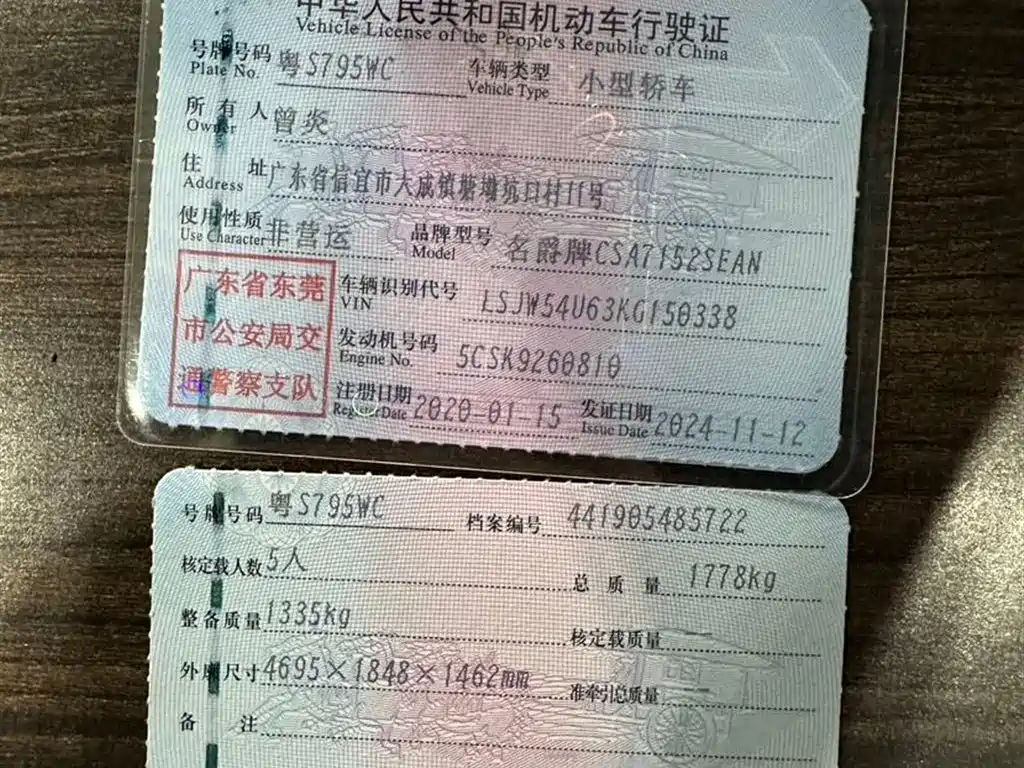 中华人民共和国机动车行驶证
Vehicle License of the People's Republic of China
号牌号码 粤S795WC 车辆类型 小型轿车
Plate No. Vehicle Type
所有人 曾炎
Owner
住址 广东省信宜市大成镇塘坳坑口村11号
Address
使用性质 非营运 品牌型号 名爵牌CSA7152SEAN
Use Character Model
广东省东莞
市公安局交
通警察支队
车辆识别代号 LSJW54U63KG150338
VIN
发动机号码 5CSK9260810
Engine No.
注册日期 2020-01-15 发证日期 2024-11-12
Register Date Issue Date
号牌号码 粤S795WC 档案编号 441905485722
核定载人数 5人 总质量 1778kg
整备质量 1335kg 核定载质量
外廓尺寸 4695×1848×1462mm 准牵引总质量 --
备注